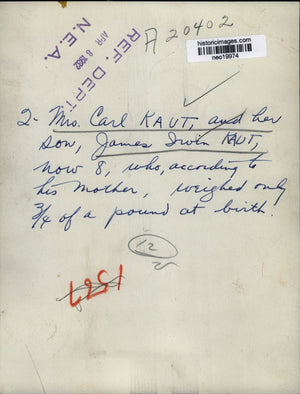 A20402
historicimages.com
neo19974
REF. DEPT.
APR 8 1932
N.E.A.
2- Mrs. Carl KAUT, and her
son, James Irwin KAUT,
now 8, who, according to
his mother, weighed only
3/4 of a pound at birth.
12
1567